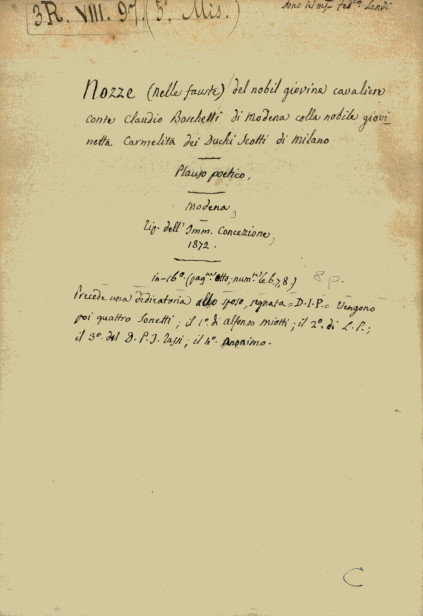 3.R. VIII. 97. (5°. Mis.)
Dono di
Nozze (nelle fauste) del nobil giovine cavaliere
conte Claudio Boschetti di Modena colla nobile giovi
netta Carmelita dei Duchi Scotti di Milano
Plauso poetico.
Modena,
Tip. dell' Imm. Concezione,
1872.
In-16°. (pag.ne otto, num.te le 6,7,8.) 8 p.
Precede una dedicatoria allo sposo, segnata = D.I.P. = Vengono
poi quattro Sonetti; il 1°. di Alfonso Miotti; il 2°. di L.P.;
il 3°. del D. P. I. Tassi; il 4°. Anonimo.
C